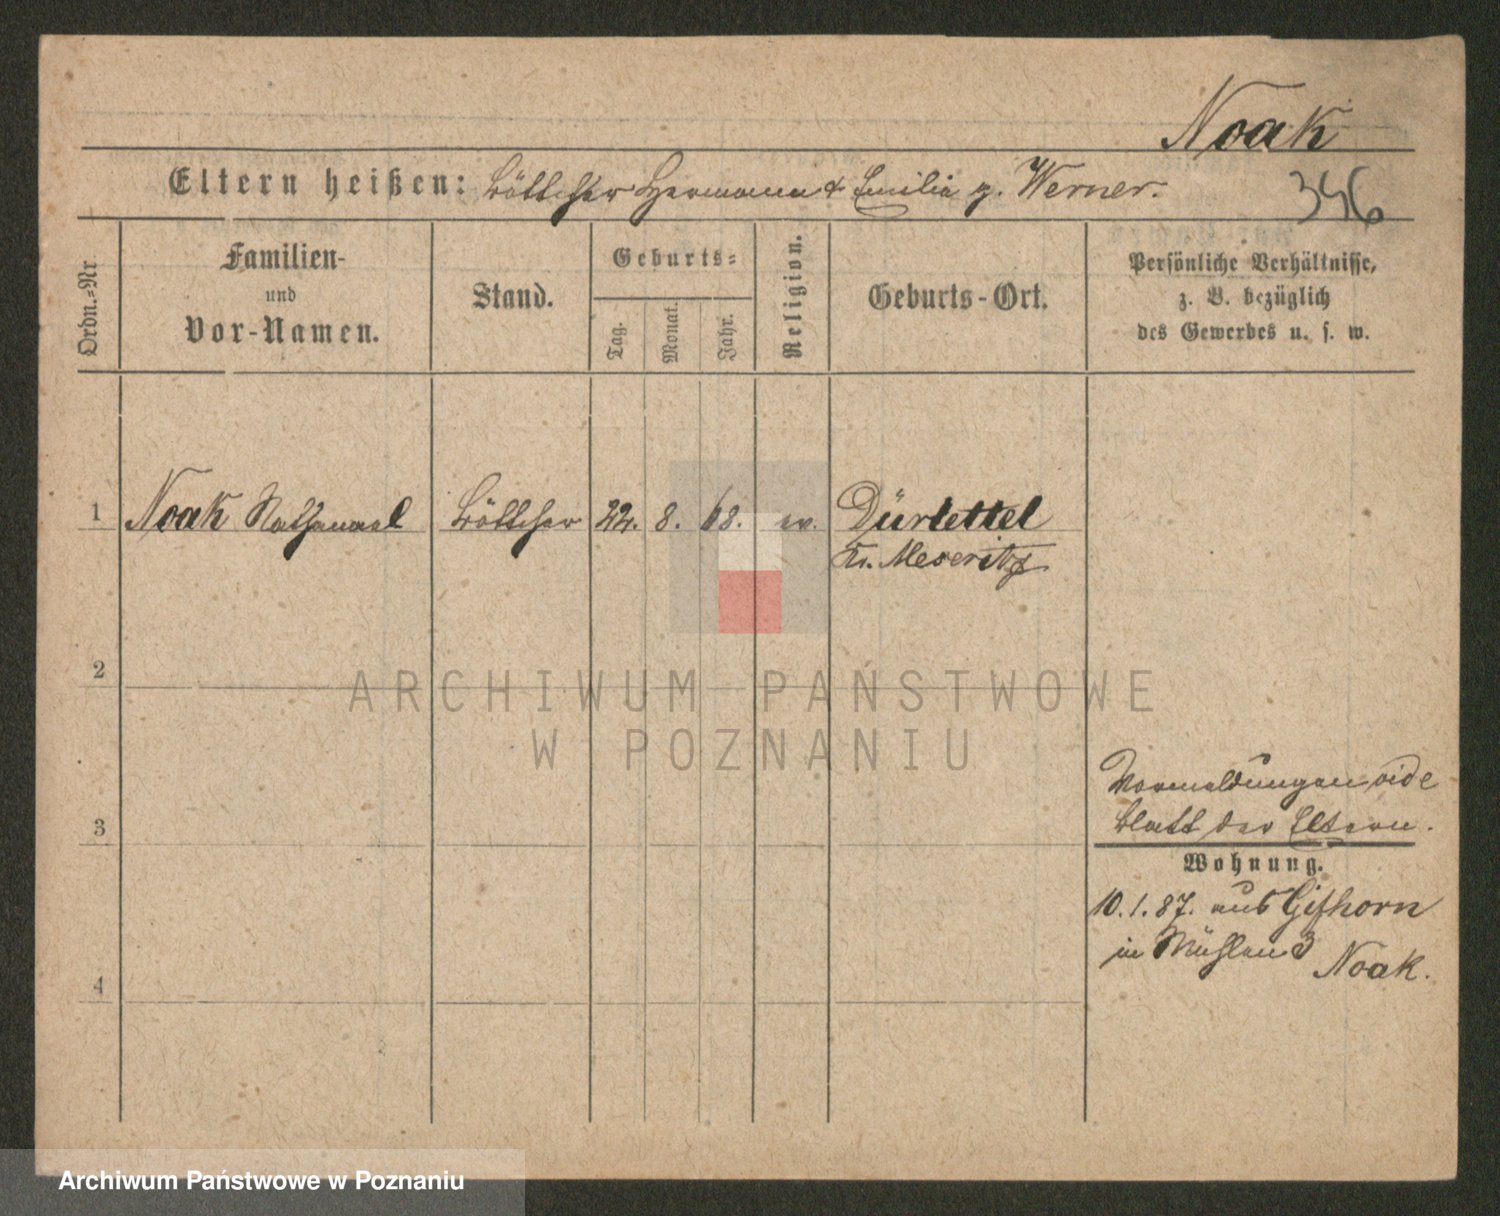 Noak
346
Eltern heißen: Böttcher Hermann & Emilia g. Werner.
Ordn.=Nr
Familien-
und
Vor-Namen.
Stand.
Geburts=
Tag.
Monat.
Jahr.
Religion.
Geburts-Ort.
Persönliche Verhältnisse,
z. B. bezüglich
des Gewerbes u. s. w.
1 Noak Nathanael Böttcher 22. 8. 68. ev. Dürlettel
Kr. Meseritz
2
ARCHIWUM PAŃSTWOWE
W POZNANIU
Vormeldungen vide
Blatt der Eltern.
3
Wohnung.
10.1.87. aus Gifhorn
in Mühlen 3 Noak.
4
Archiwum Państwowe w Poznaniu